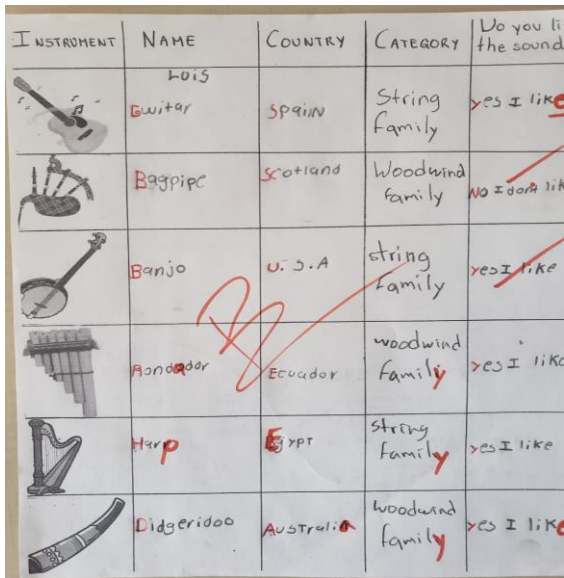 INSTRUMENT NAME COUNTRY CATEGORY Do you li
the sound
LUIS
Guitar Spain String
family yes I like
Bagpipe Scotland Woodwind
family No I don't lik
Banjo U.S.A string
family yes I like
Rondador Ecuador woodwind
family yes I like
Harp Egypt string
family yes I like
Didgeridoo Australia woodwind
family yes I like